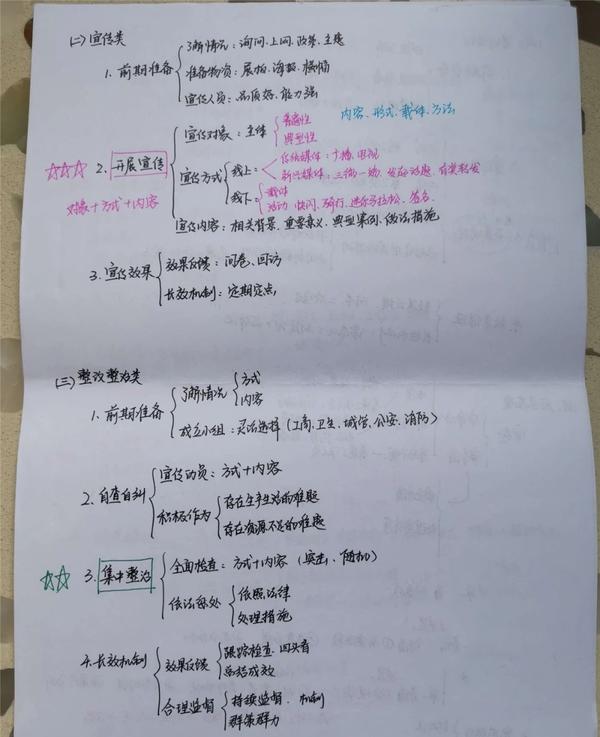 (二)宣传类
1. 前期准备
了解情况：询问、上网、政策、主题
准备物资：展柏、海报、横幅
宣传人员：品质好、能力强
内容、形式、载体、方法
☆☆☆ 2. 开展宣传
对象＋方式＋内容
宣传对象：主体
普遍性
典型性
宣传方式
线上：
传统媒体：广播、电视
新兴媒体：三微一端、发起话题、有奖转发
线下：
载体
活动 快闪、骑行、迷你马拉松、签名.
宣传内容：相关背景、重要意义、典型案例、做法措施
3. 宣传效果
效果反馈：问卷、回访
长效机制：定期定点.
(三)整改整治类
1. 前期准备
了解情况
方式
内容
成立小组：灵活选择(工商、卫生、城管、公安、消防)
2. 自查自纠
宣传动员：方式＋内容
积极作为
存在生产生活的难题
存在资源不足的难题
☆☆ 3. 集中整治
全面检查：方式＋内容 (突击、随机)
依法惩处
依照法律
处理措施
4. 长效机制
效果反馈
跟踪检查、回头看
总结成效
合理监督
持续监督、机制
群策群力